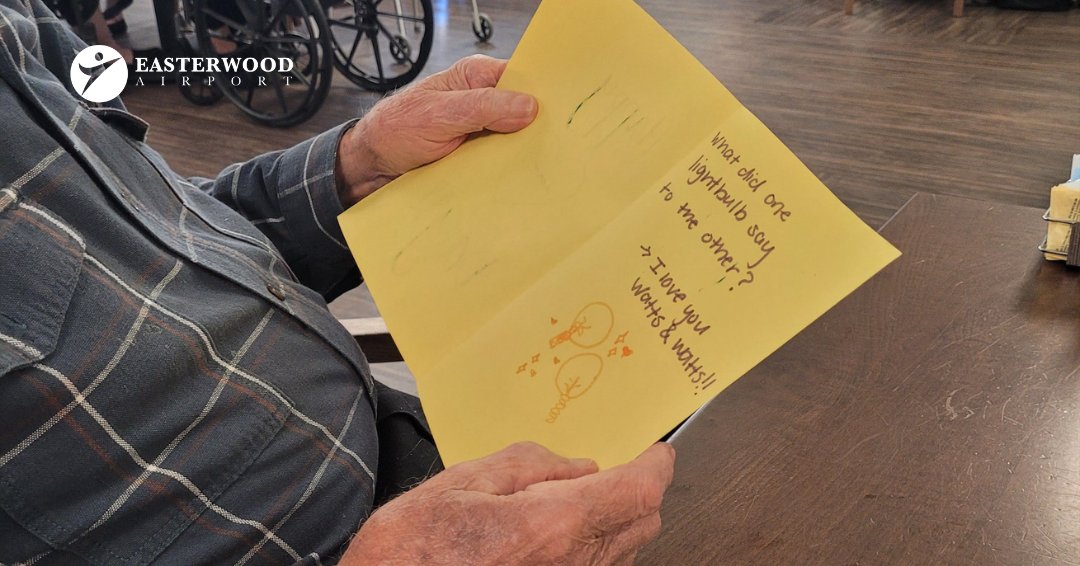 EASTERWOOD
AIRPORT
What did one
lightbulb say
to the other?
→ I love you
Watts & Watts!!